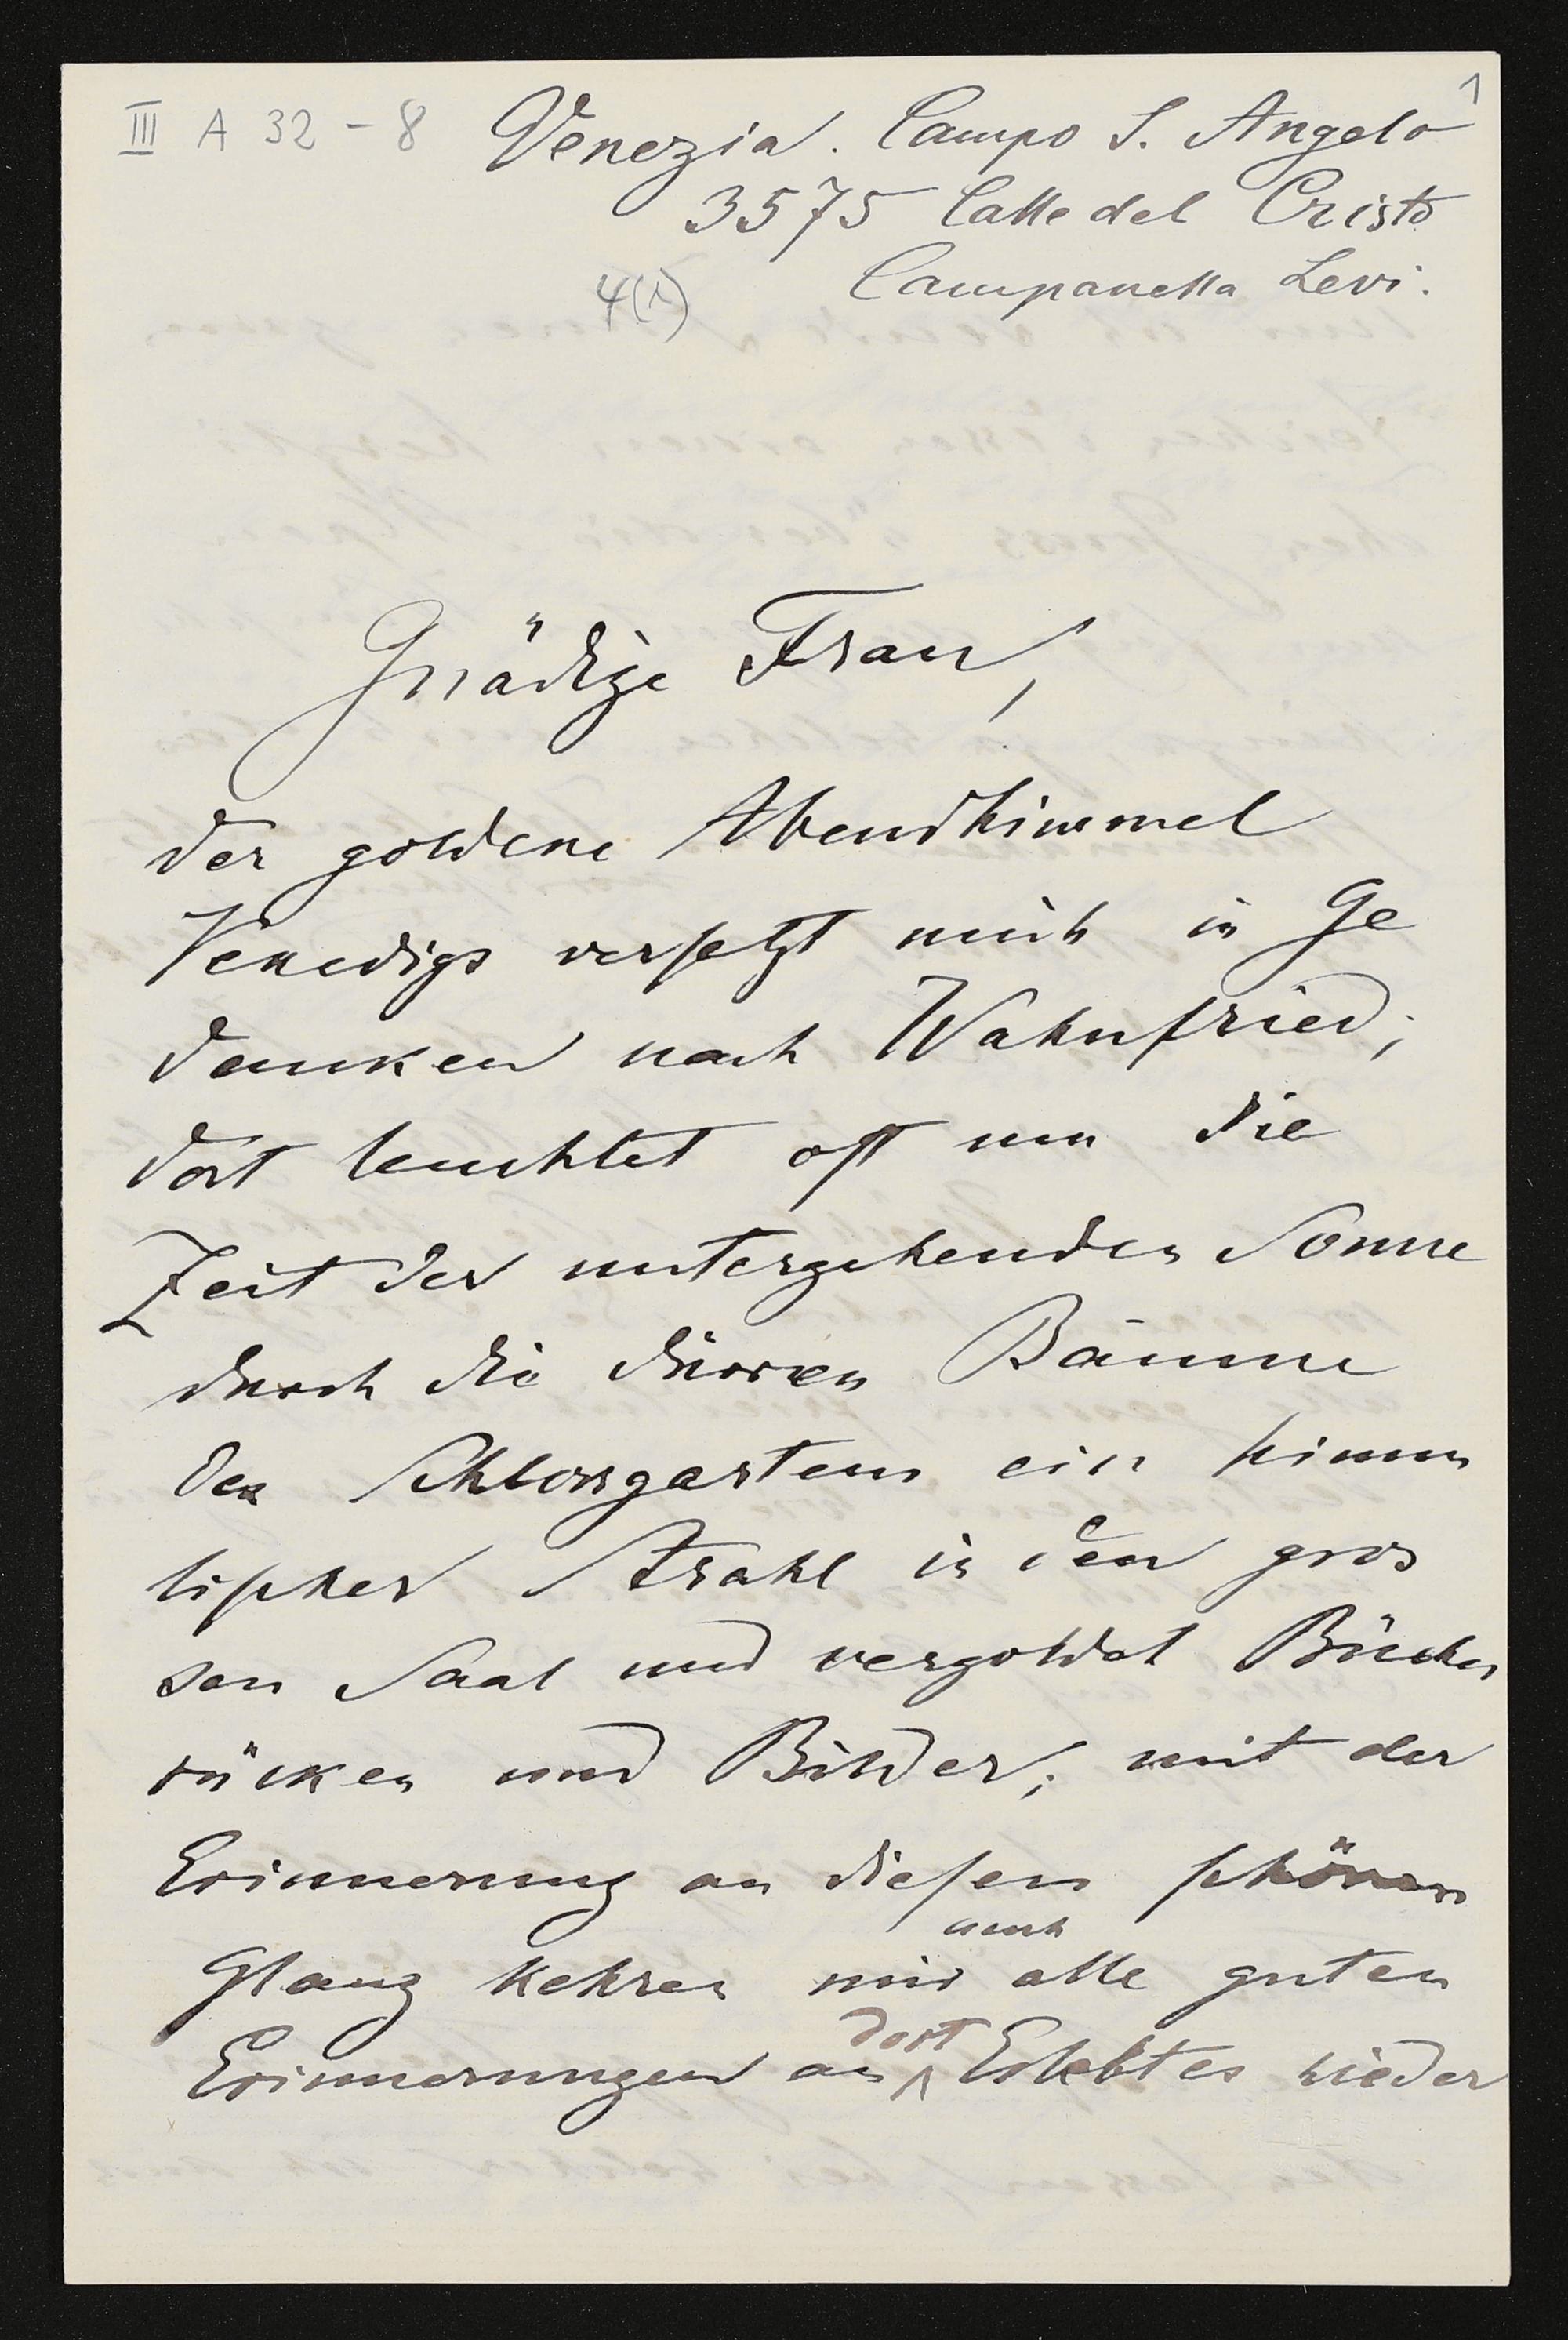 III A 32 - 8 Venezia. Campo S. Angelo 1
3575 Calle del Cristo
4(1) Campanella Levi.
Gnädige Frau,
der goldene Abendhimmel
Venedigs versetzt mich in Ge
danken nach Wahnfried;
dort leuchtet oft um die
Zeit der untergehenden Sonne
durch die dürren Bäume
des Schlossgartens ein himm
lischer Strahl in den gros
sen Saal und vergoldet Bücher
rücken und Bilder; mit der
Erinnerung an diesen schönen
auch
Glanz kehren mir alle guten
dort
Erinnerungen an ∧ Erlebtes wieder